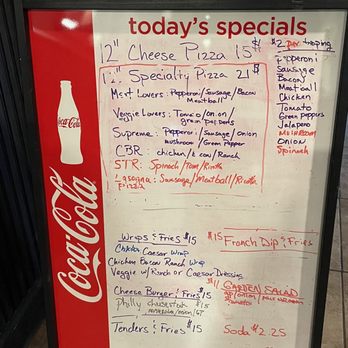 today's specials
12" Cheese Pizza 15 $
$2 per topping
12" Specialty Pizza 21 $
Meat Lovers: Pepperoni/Sausage/Bacon
Meatball
Veggie Lovers: Tomato/onion
Green peppers
Supreme: Pepperoni/Sausage/onion
mushroom/Green Pepper
CBR: chicken/Bacon/Ranch
STR: Spinach/Tom/Ricotta
Lasagna: Sausage/Meatball/Ricotta
Pizza
Pepperoni
Sausage
Bacon
Meatball
Chicken
Tomato
Green peppers
Jalapeno
Mushroom
Onion
Spinach
Coca-Cola
Coca-Cola
Wraps & Fries $15
Chicken Caesar Wrap
Chicken Bacon Ranch Wrap
Veggie w/ Ranch or Caesar Dressing
Cheese Burger & Fries $15
Philly cheesesteak $15
Tenders & Fries $15
$15 French Dip & Fries
$11 GARDEN SALAD
Tomato
Soda $2.25